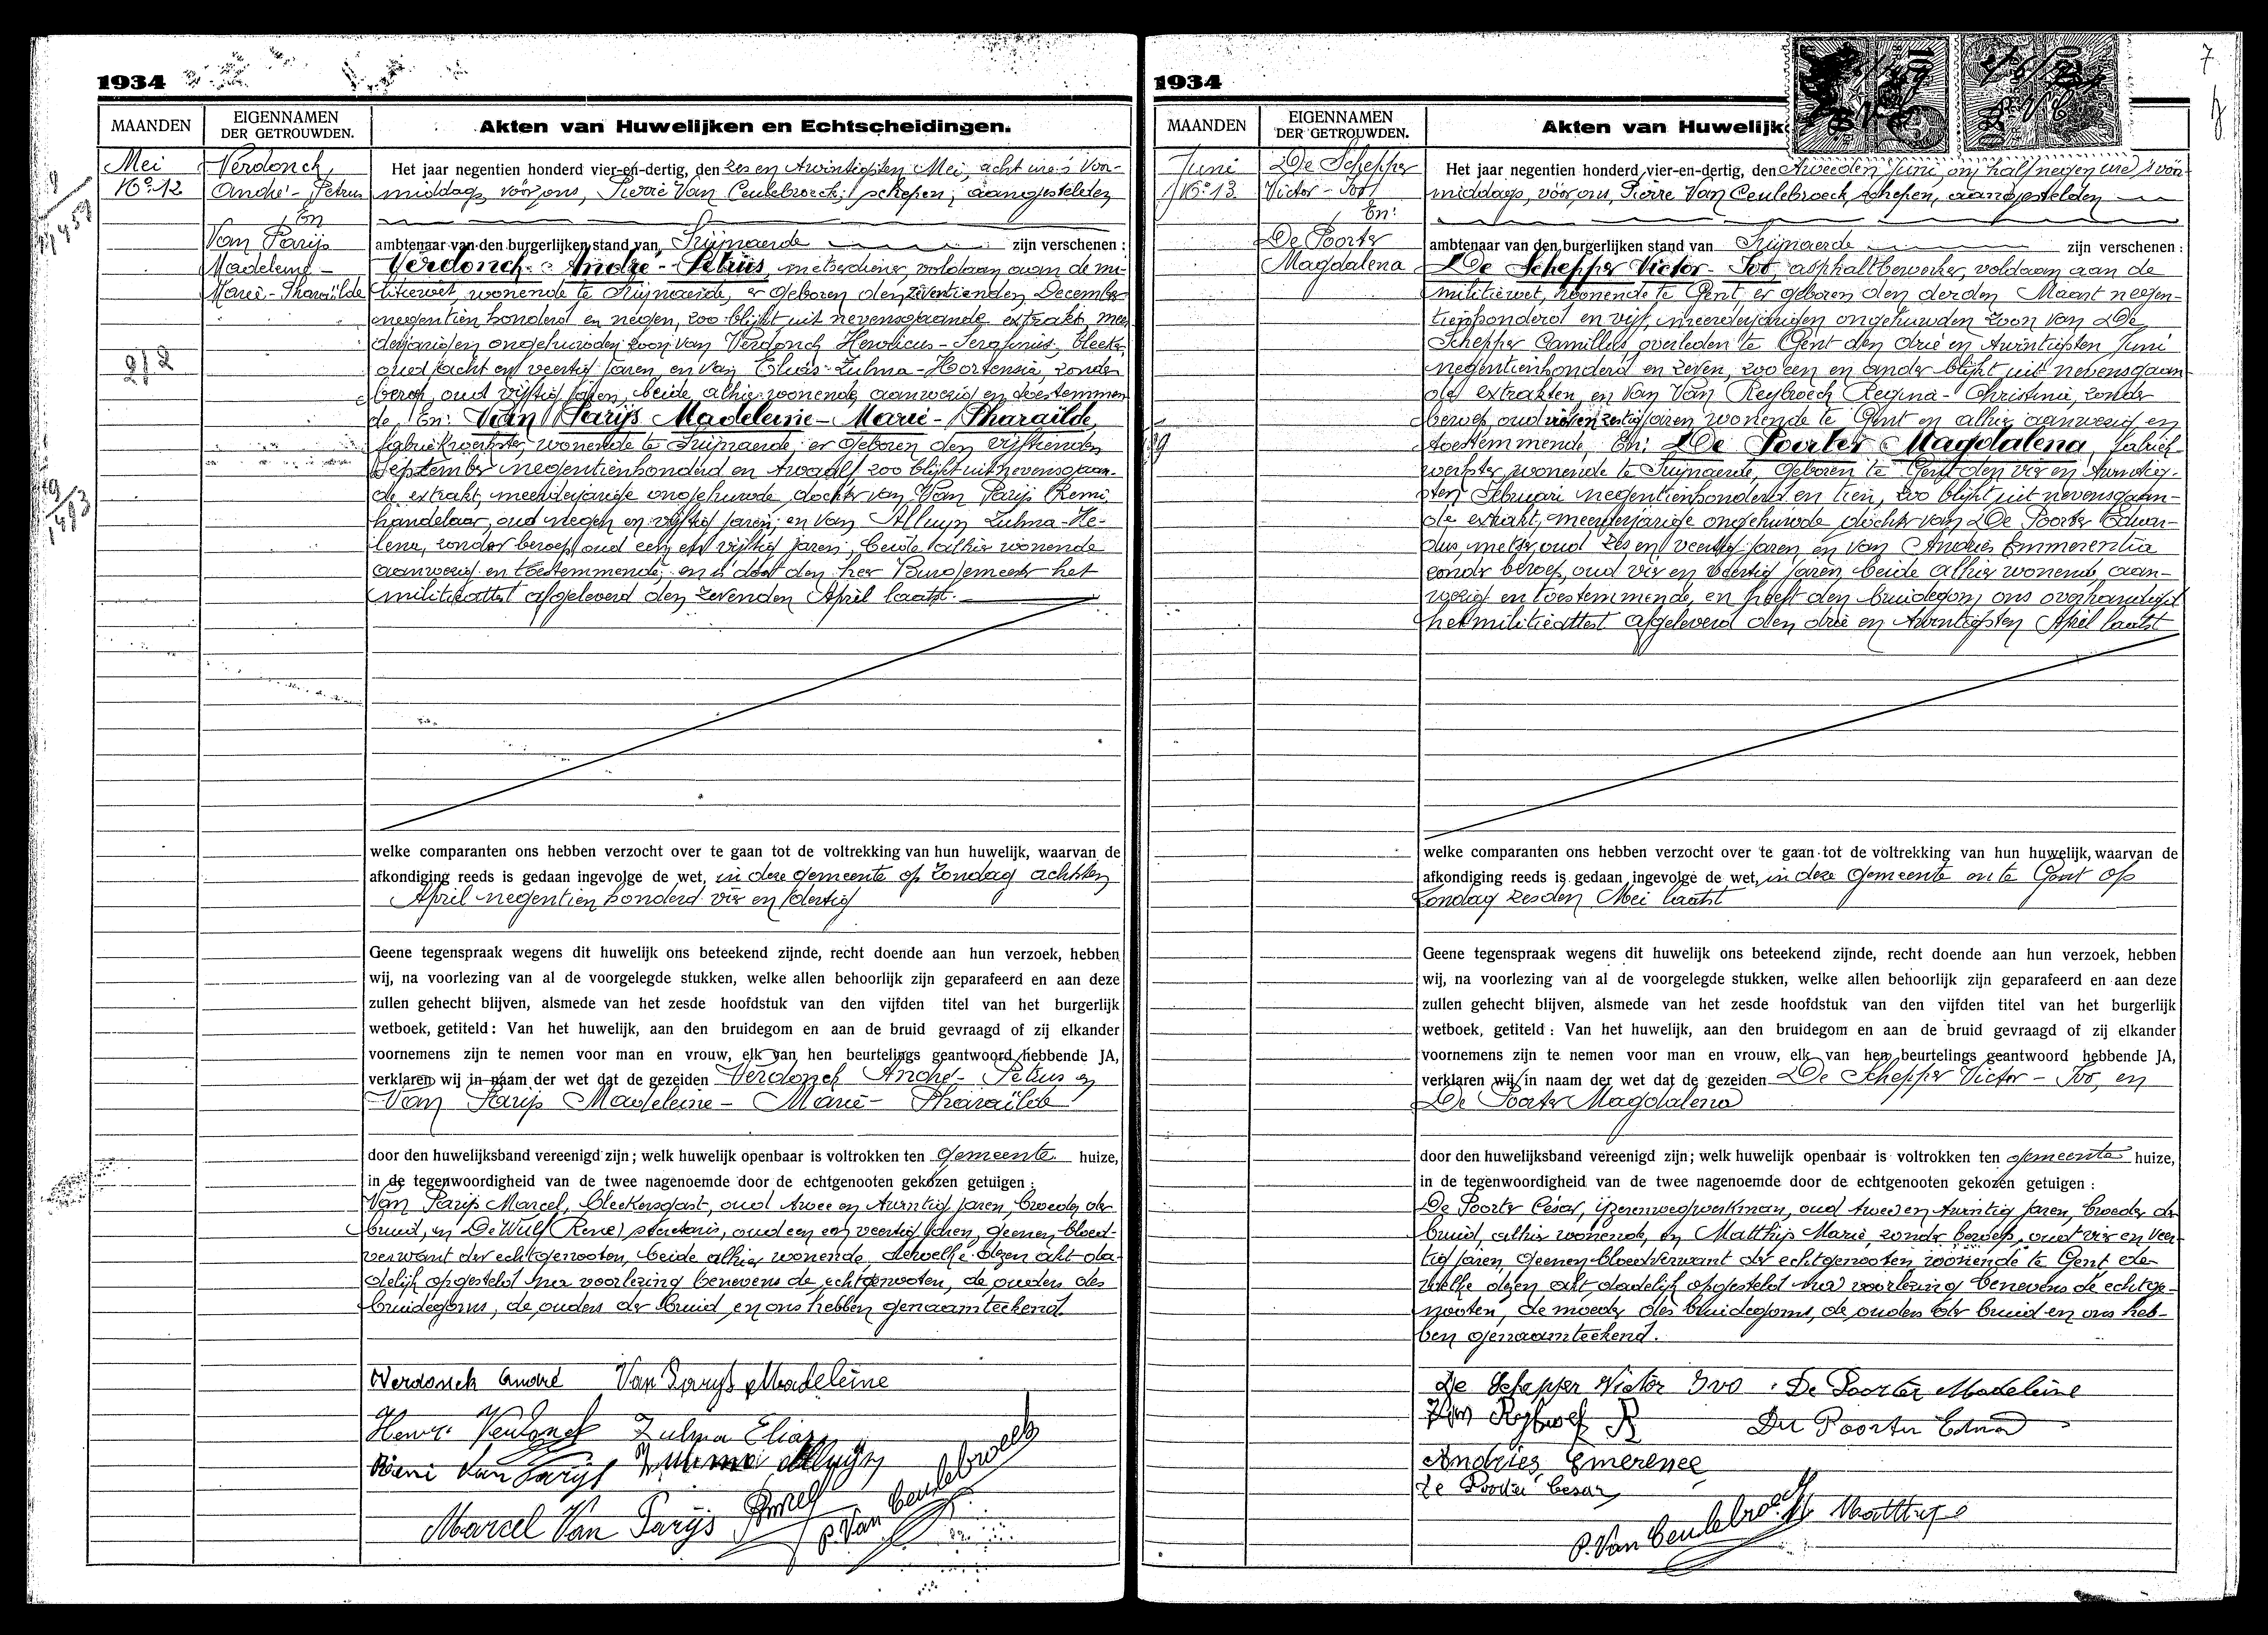 1934
MAANDEN
EIGENNAMEN
DER GETROUWDEN.
Akten van Huwelijken en Echtscheidingen.
Mei
No 12
Verdonck,
André - Petrus
En
Van Parijs
Madeleine -
Marie - Pharaïlde
Het jaar negentien honderd vier-en-dertig, den zes en twintigsten Mei, acht ure 's voor-
middags, vóór ons, Pierre Van Ceulebroeck, schepen, aangestelden
ambtenaar van den burgerlijken stand van Zwijnaerde zijn verschenen :
Verdonck - André - Petrus, metserdiener, voldaan aan de mi-
litiewet, wonende te Zwijnaerde, er geboren den zeventienden December
negentien honderd en negen, zoo blijkt uit nevensgaande extrakt, meer-
derjarigen ongehuwden zoon van Verdonck Henricus - Serafinus, bleeker,
oud acht en veertig jaren, en van Elias Zulma - Hortensia, zonder
beroep, oud vijftig jaren, beide alhier wonende, aanwezig en toestemmen-
de, En: Van Parijs Madeleine - Marie - Pharaïlde,
fabriekwerkster, wonende te Zwijnaerde er geboren den vijftienden
September negentienhonderd en twaalf, zoo blijkt uit nevensgaan-
de extrakt, meerderjarige ongehuwde dochter van Van Parijs Remi,
handelaar, oud negen en vijftig jaren, en van Alluyn Zulma - He-
lena, zonder beroep, oud een en vijftig jaren, beide alhier wonende
aanwezig en toestemmende, en is door den heer Burgemeester het
militieattest afgeleverd den zevenden April laatst.
welke comparanten ons hebben verzocht over te gaan tot de voltrekking van hun huwelijk, waarvan de
afkondiging reeds is gedaan ingevolge de wet, in deze gemeente op Zondag achtsten
April negentien honderd vier en dertig
Geene tegenspraak wegens dit huwelijk ons beteekend zijnde, recht doende aan hun verzoek, hebben
wij, na voorlezing van al de voorgelegde stukken, welke allen behoorlijk zijn geparafeerd en aan deze
zullen gehecht blijven, alsmede van het zesde hoofdstuk van den vijfden titel van het burgerlijk
wetboek, getiteld : Van het huwelijk, aan den bruidegom en aan de bruid gevraagd of zij elkander
voornemens zijn te nemen voor man en vrouw, elk van hen beurtelings geantwoord hebbende JA,
verklaren wij in naam der wet dat de gezeiden Verdonck André - Petrus en
Van Parijs Madeleine - Marie - Pharaïlde
door den huwelijksband vereenigd zijn ; welk huwelijk openbaar is voltrokken ten gemeente huize,
in de tegenwoordigheid van de twee nagenoemde door de echtgenooten gekozen getuigen :
Van Parijs Marcel, bleekersgast, oud twee en twintig jaren, broeder der
bruid, en De Wulf René, secretaris, oud een en veertig jaren, geenen bloed-
verwant der echtgenooten, beide alhier wonende, dewelke dezen akt da-
delijk opgesteld na voorlezing benevens de echtgenooten, de ouders des
bruidegoms, de ouders der bruid en ons hebben genaamteekend.
Verdonck André Van Parijs Madeleine
Henri Verdonck Zulma Elias
Remi Van Parijs Zulma Alluyn
Marcel Van Parijs P. Van Ceulebroeck
1934
7
MAANDEN
EIGENNAMEN
DER GETROUWDEN.
Akten van Huwelijk
Juni
No 13
De Schepper
Victor - Ivo
En:
De Poorter
Magdalena
Het jaar negentien honderd vier-en-dertig, den tweeden Juni, om half negen ure 's voor-
middags, vóór ons, Pierre Van Ceulebroeck, schepen, aangestelden
ambtenaar van den burgerlijken stand van Zwijnaerde zijn verschenen :
De Schepper Victor - Ivo, asphaltbewerker, voldaan aan de
militiewet, wonende te Gent, er geboren den derden Maart negen-
tienhonderd en vijf, meerderjarigen ongehuwden zoon van De
Schepper Camillus overleden te Gent den drie en twintigsten Juni
negentienhonderd en zeven, zoo een en ander blijkt uit nevensgaan-
de extrakten, en van Van Reybroeck Regina - Christina, zonder
beroep, oud zestig jaren wonende te Gent en alhier aanwezig en
toestemmende, En: De Poorter Magdalena, fabriek-
werkster, wonende te Zwijnaerde, geboren te Gent den vier en twintig-
sten Februari negentienhonderd en tien, zoo blijkt uit nevensgaan-
de extrakt, meerderjarige ongehuwde dochter van De Poorter Eduar-
dus, metser, oud zes en veertig jaren, en van Andries Emmerentia
zonder beroep, oud vier en veertig jaren, beide alhier wonende, aan-
wezig en toestemmende, en heeft den bruidegom ons overhandigd
het militieattest afgeleverd den drie en twintigsten April laatst
welke comparanten ons hebben verzocht over te gaan tot de voltrekking van hun huwelijk, waarvan de
afkondiging reeds is gedaan ingevolge de wet, in deze gemeente en te Gent op
Zondag zesden Mei laatst
Geene tegenspraak wegens dit huwelijk ons beteekend zijnde, recht doende aan hun verzoek, hebben
wij, na voorlezing van al de voorgelegde stukken, welke allen behoorlijk zijn geparafeerd en aan deze
zullen gehecht blijven, alsmede van het zesde hoofdstuk van den vijfden titel van het burgerlijk
wetboek, getiteld : Van het huwelijk, aan den bruidegom en aan de bruid gevraagd of zij elkander
voornemens zijn te nemen voor man en vrouw, elk van hen beurtelings geantwoord hebbende JA,
verklaren wij in naam der wet dat de gezeiden De Schepper Victor - Ivo, en
De Poorter Magdalena
door den huwelijksband vereenigd zijn ; welk huwelijk openbaar is voltrokken ten gemeente huize,
in de tegenwoordigheid van de twee nagenoemde door de echtgenooten gekozen getuigen :
De Poorter César, ijzerenwegwerkman, oud twee en twintig jaren, broeder der
bruid, alhier wonende, en Matthijs Marie, zonder beroep, oud vier en veer-
tig jaren, geenen bloedverwant der echtgenooten wonende te Gent, de-
welke dezen akt dadelijk opgesteld na voorlezing benevens de echtge-
nooten, de moeder des bruidegoms, de ouders der bruid en ons heb-
ben genaamteekend.
De Schepper Victor Ivo . De Poorter Madeleine
Van Reybroeck R De Poorter Eduard
Andries Emerence
De Poorter Cesar
P. Van Ceulebroeck M Matthijs